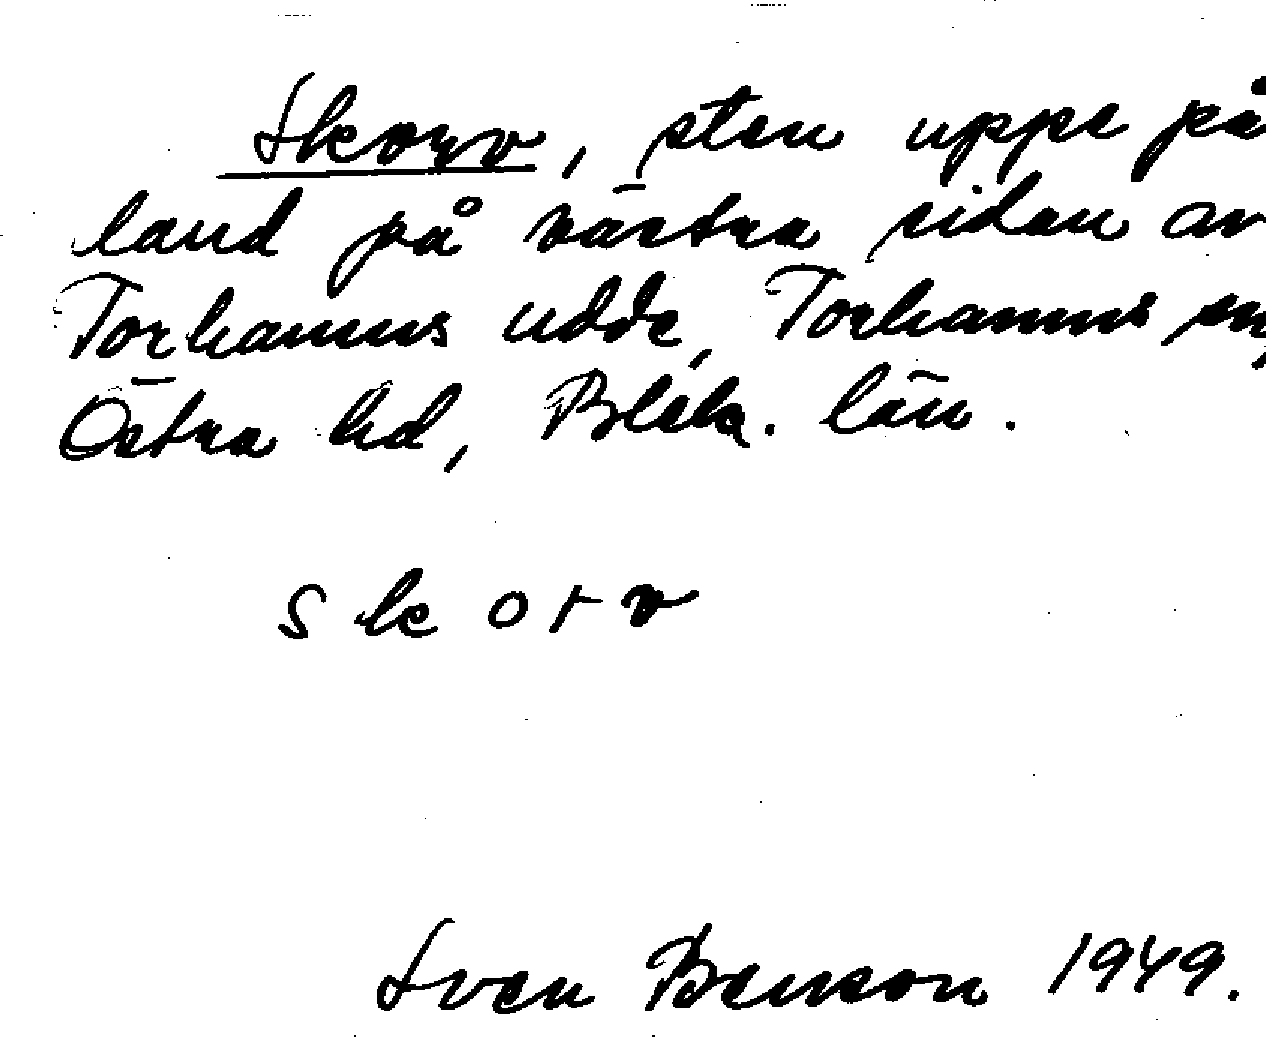 Skorv, sten uppe på
land på västra sidan av
Torhamns udde, Torhamns sn,
Östra hd, Blek. län.
s k o r v
Sven Benson 1949.